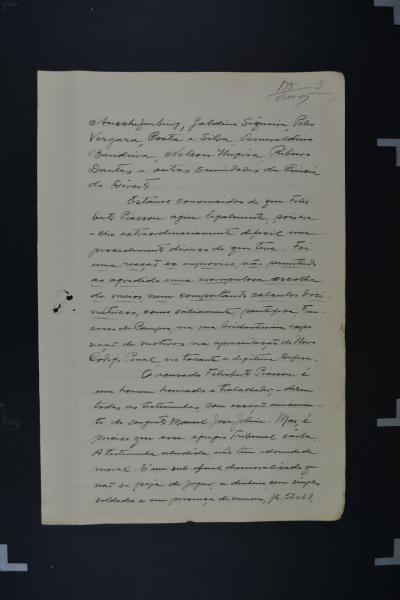 115 3
Galdino Siqueira, Pedro
Vergara, Costa e Silva, Esmeraldino
Bandeira, Nelson Hungria, Ribeiro
Dantas e outras sumidades da Ciencia
do Direito.
Estamos convencidos de que Felis-
berto Piasson agiu legalmente, pois era
-lhe extraordinariamente dificil um
procedimento diverso do que teve. Foi
uma reação ex improviso, não permitindo
ao agredido uma escrupulosa escolha
de meios nem comportando calculos dosi-
metricos, como sabiamente, pontifica Fran-
cisco de Campos, na sua brilhantissima expo-
sição de motivos na apresentação do Novo
Código Penal, no tocante a legitima defesa.
O acusado Felisberto Piasson é
um homem honrado e trabalhador, - dizem
todas as testemunhas, com exceção unicamen-
te do sargento Manoel José Jobim. Mas, é
preciso que esse egregio Tribunal saiba.
A testemunha aludida não tem idoneidade
moral. É um sub-oficial desmoralizado que
não se peja de jogar, a dinheiro com simples
soldados e em presença de menores, fls.